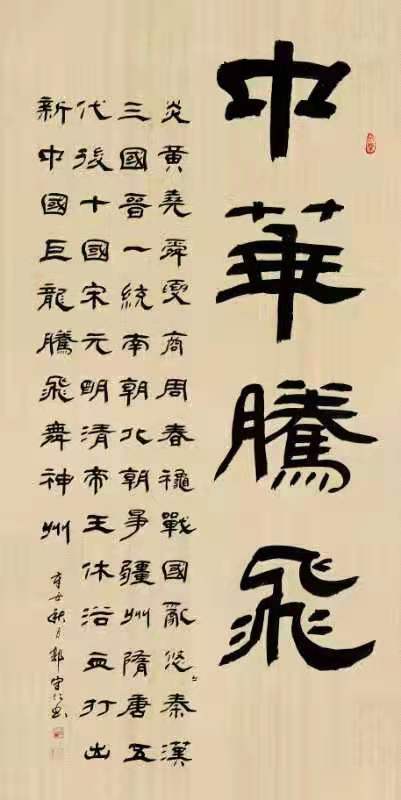 中華騰飛
炎黄堯舜夏商周春龝戰國亂悠々秦漢
三國晉一統南朝北朝爭疆州隋唐五
代後十國宋元明清帝王休浴血打出
新中國巨龍騰飛舞神州
辛丑秋月郭守书